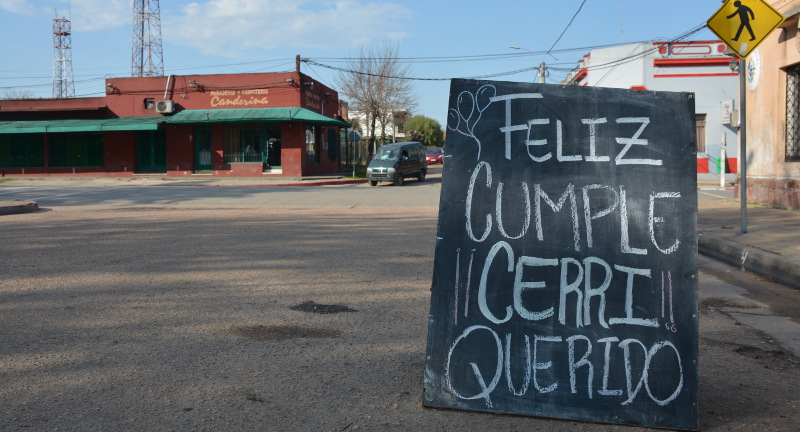 PANADERIA Y CONFITERIA
Canderina
FELIZ
CUMPLE
¡¡CERRI!!
QUERIDO